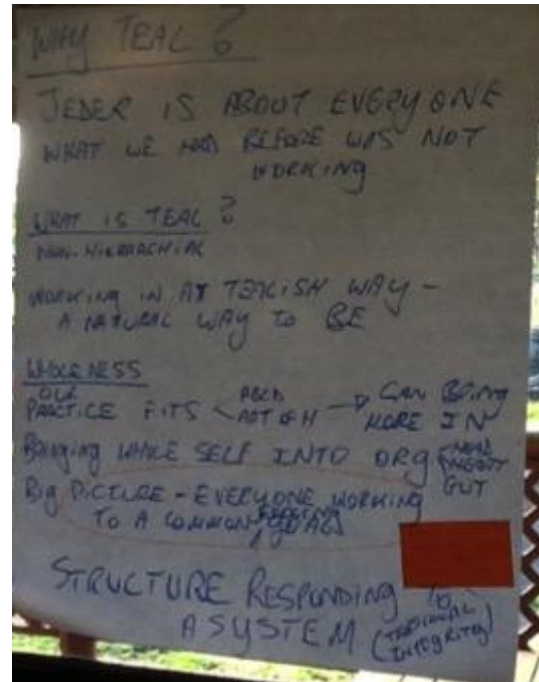 WHY TEAL?
JEDER IS ABOUT EVERYONE
WHAT WE HAD BEFORE WAS NOT
WORKING
WHAT IS TEAL?
NON-HIERARCHIAL
WORKING IN A TEALISH WAY -
A NATURAL WAY TO BE
WHOLENESS
OUR
PRACTICE FITS < ABCD
ART OF H → CAN BRING
MORE IN
Bringing WHOLE SELF INTO ORG HEAD
HEART
GUT
Big PICTURE - EVERYONE WORKING
TO A COMMON GOAL
STRUCTURE RESPONDING
A SYSTEM
INTEGRITY)